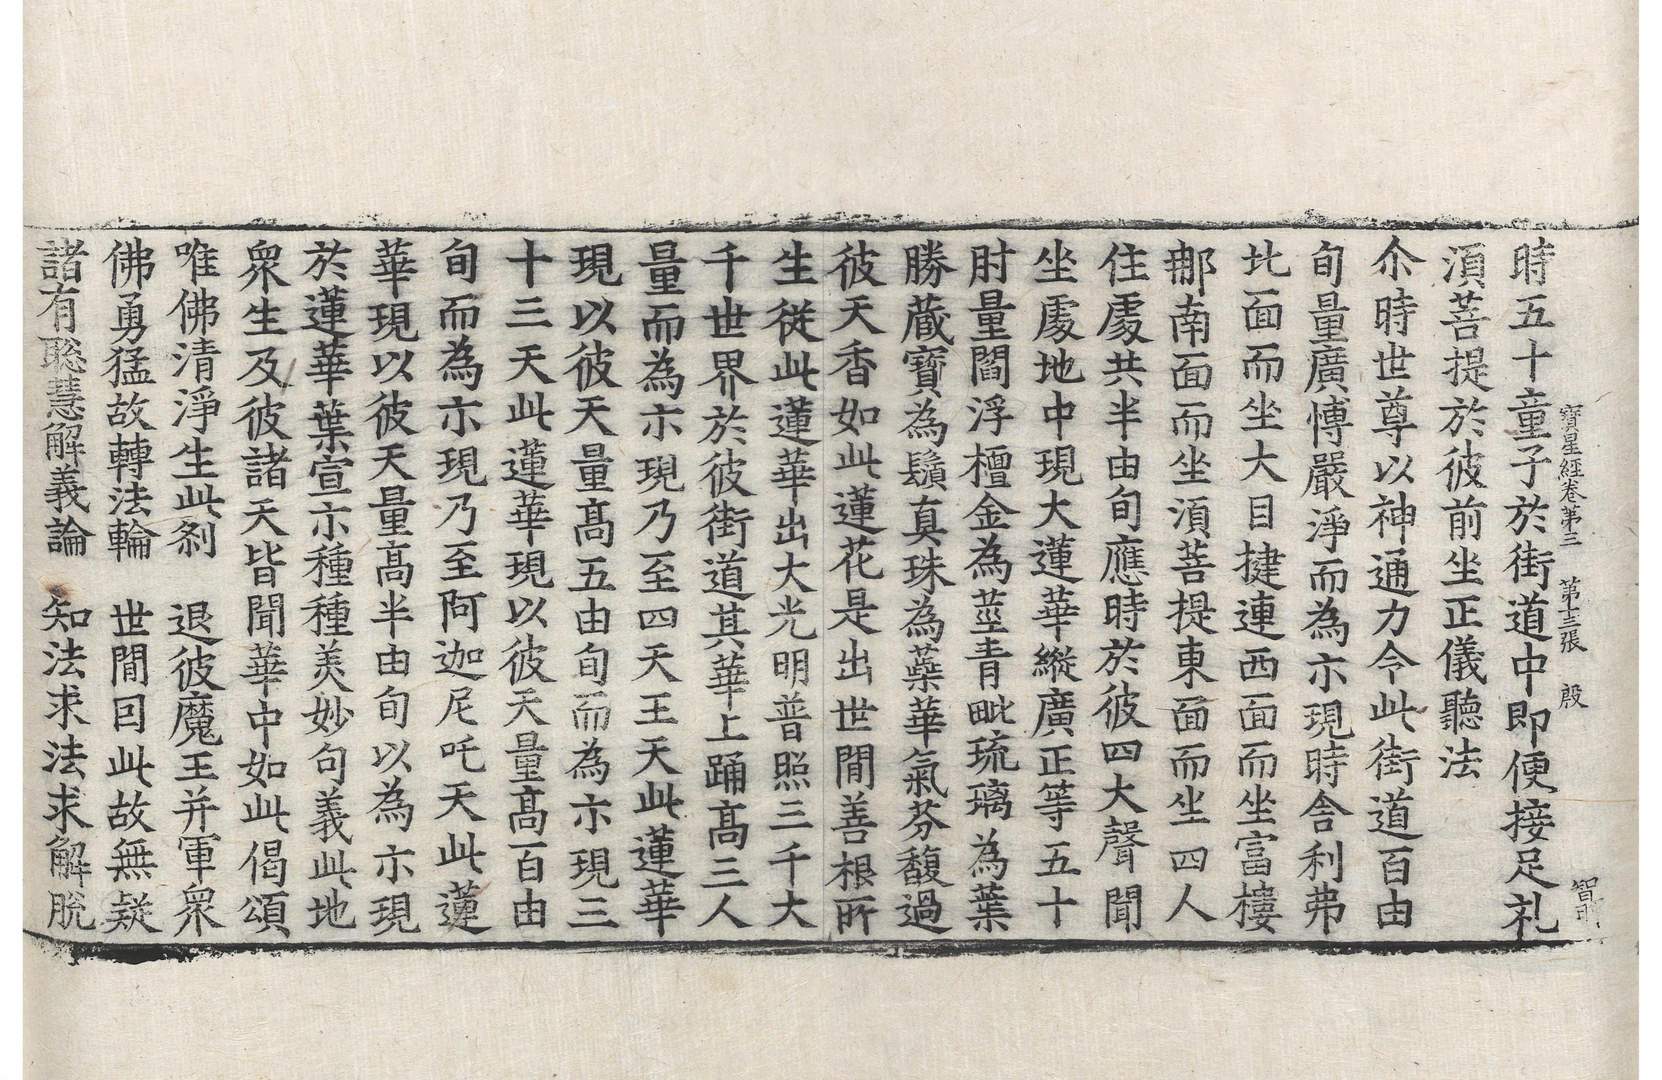 寶星經卷第三　第十三張　殷
智明
時五十童子於街道中即便接足礼
湏菩提於彼前坐正儀聽法
尒時世尊以神通力令此街道百由
旬量廣博嚴淨而為示現時舍利弗
北面而坐大目揵連西面而坐富樓
那南面而坐湏菩提東面而坐四人
住處共半由旬應時於彼四大聲聞
坐處地中現大蓮華縱廣正等五十
肘量閻浮檀金為莖青毗琉璃為葉
勝蔵寶為鬚真珠為蘂華氣芬馥過
彼天香如此蓮花是出世間善根所
生從此蓮華出大光明普照三千大
千世界於彼街道其華上踊高三人
量而為示現乃至四天王天此蓮華
現以彼天量髙五由旬而為示現三
十三天此蓮華現以彼天量髙百由
旬而為示現乃至阿迦尼吒天此蓮
華現以彼天量髙半由旬以為示現
於蓮華葉宣示種種美妙句義此地
衆生及彼諸天皆聞華中如此偈頌
唯佛清淨生此刹　退彼魔王并軍衆
佛勇猛故轉法輪　世間囙此故無疑
諸有聡慧解義論　知法求法求解脫